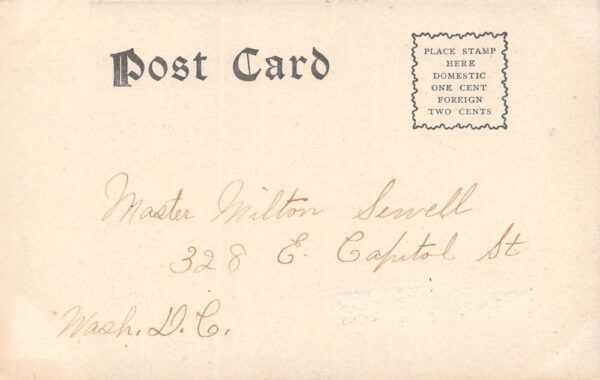 Post Card
PLACE STAMP
HERE
DOMESTIC
ONE CENT
FOREIGN
TWO CENTS
Master Milton Sewell
328 E. Capitol St
Wash. D.C.